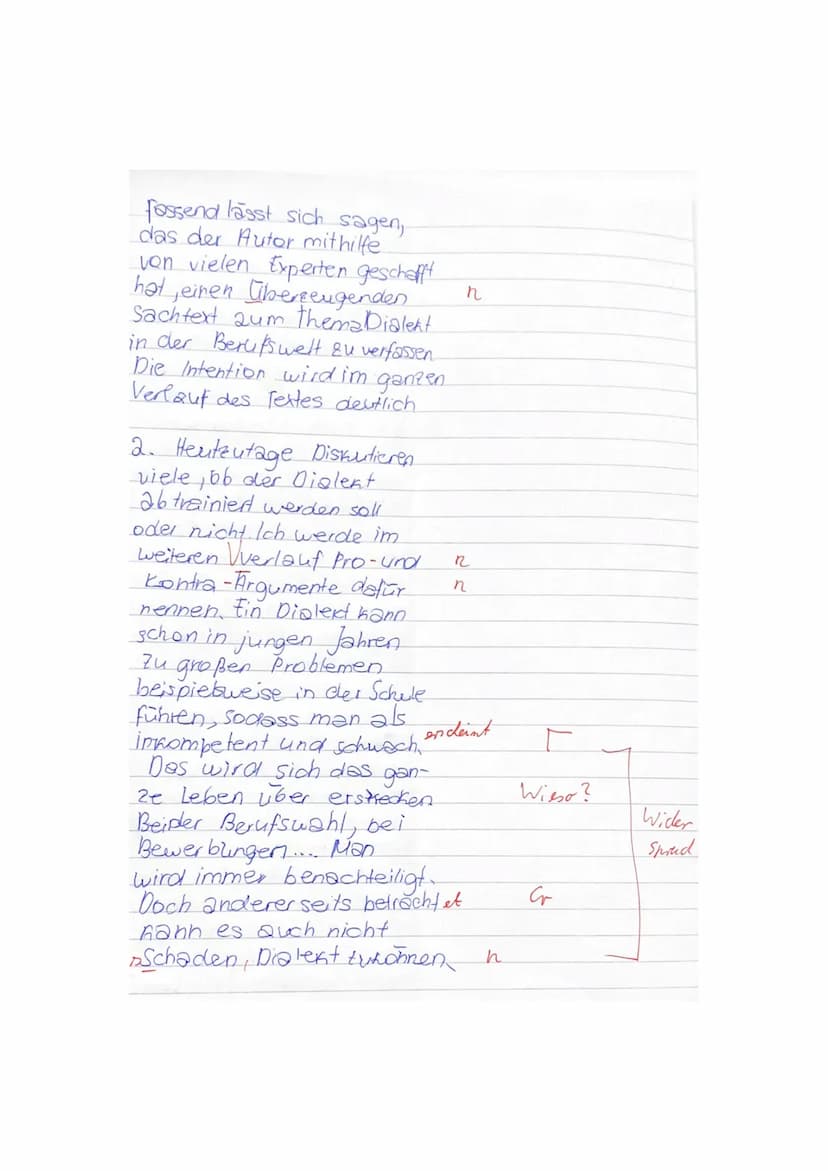 fassend lässt sich sagen,
das der Autor mithilfe
von vielen Experten geschafft
hat, einen Überzeugenden n
Sachtext zum Thema Dialekt
in der Berufswelt zu verfassen
Die Intention wird im ganzen
Verlauf des Textes deutlich
2. Heutzutage Diskutieren
viele, ob der Dialekt
abtrainiert werden soll
oder nicht. Ich werde im
weiteren Vverlauf Pro-und n
Kontra-Argumente dafür n
nennen. Ein Dialekt kann
schon in jungen Jahren
zu großen Problemen
beispielsweise in der Schule
führen, sodass man als
inkompetent und schwach. erscheint
Das wird sich das gan-
ze Leben über erstrecken
Bei der Berufswahl, bei Wieso?
Bewerbungen.... Man Wider
wird immer benachteiligt. spruch
Doch andererseits betrachtet Gr
kann es auch nicht
n Schaden, Dialekt zu können. n